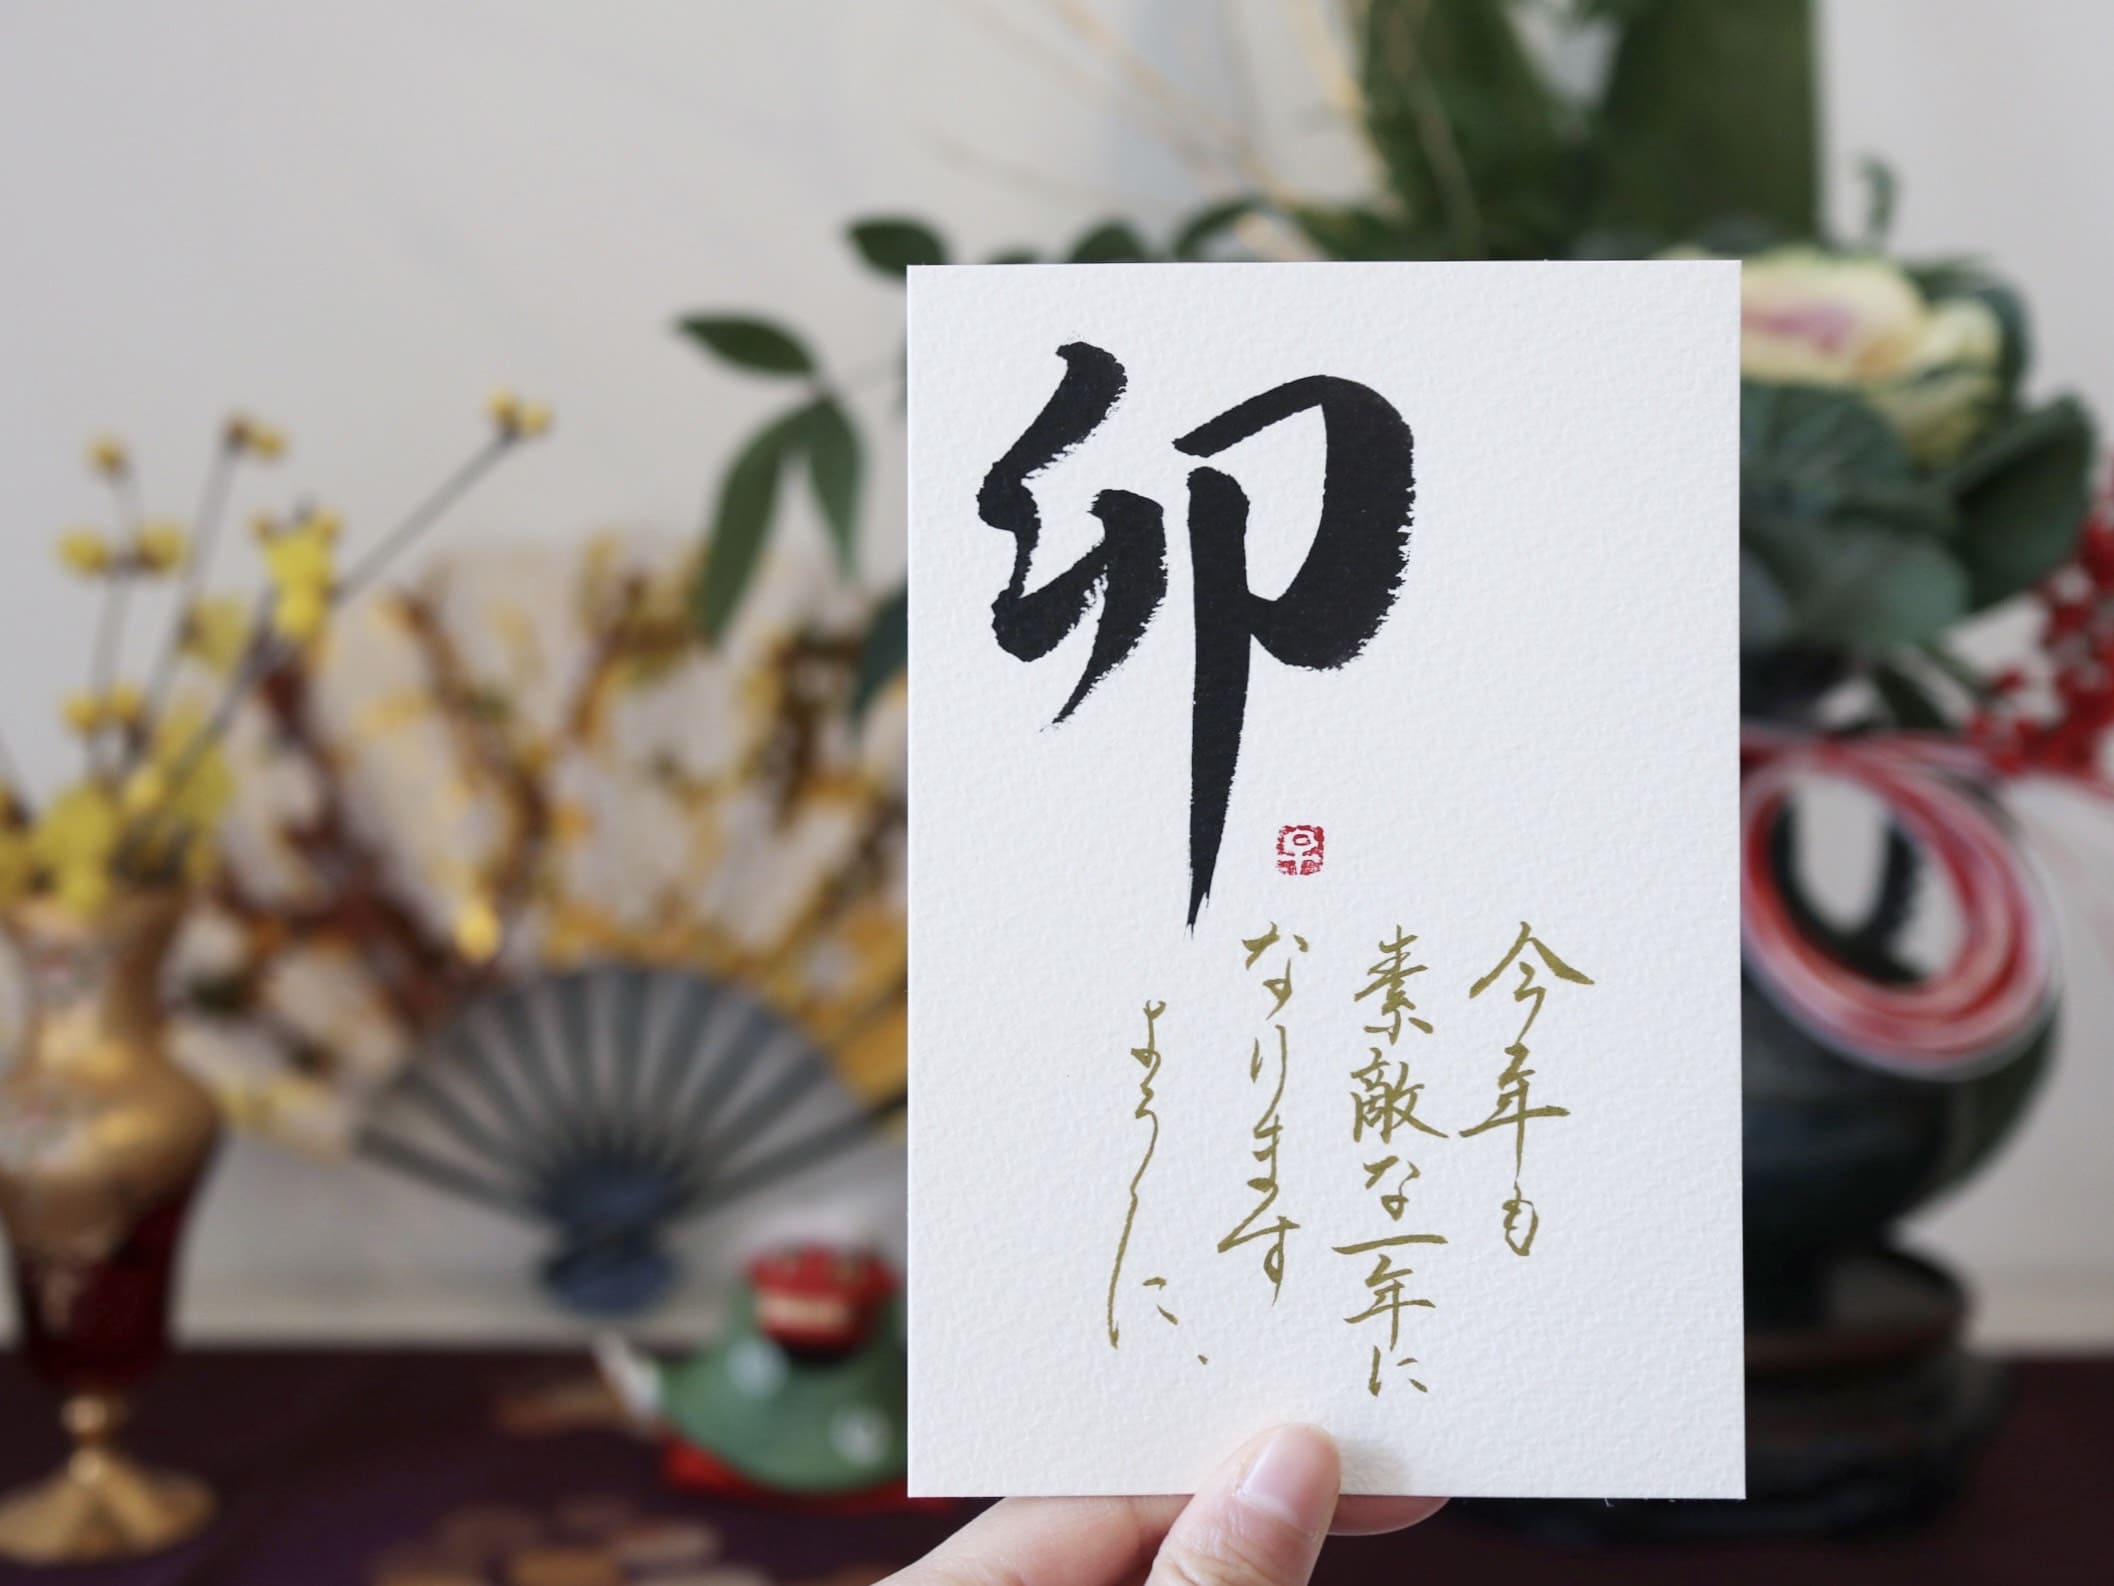 卯
今年も
素敵な一年に
なります
ように、